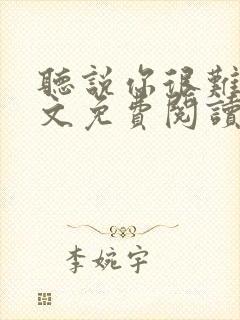 聽說你很難
文免費閱讀
李婉宇